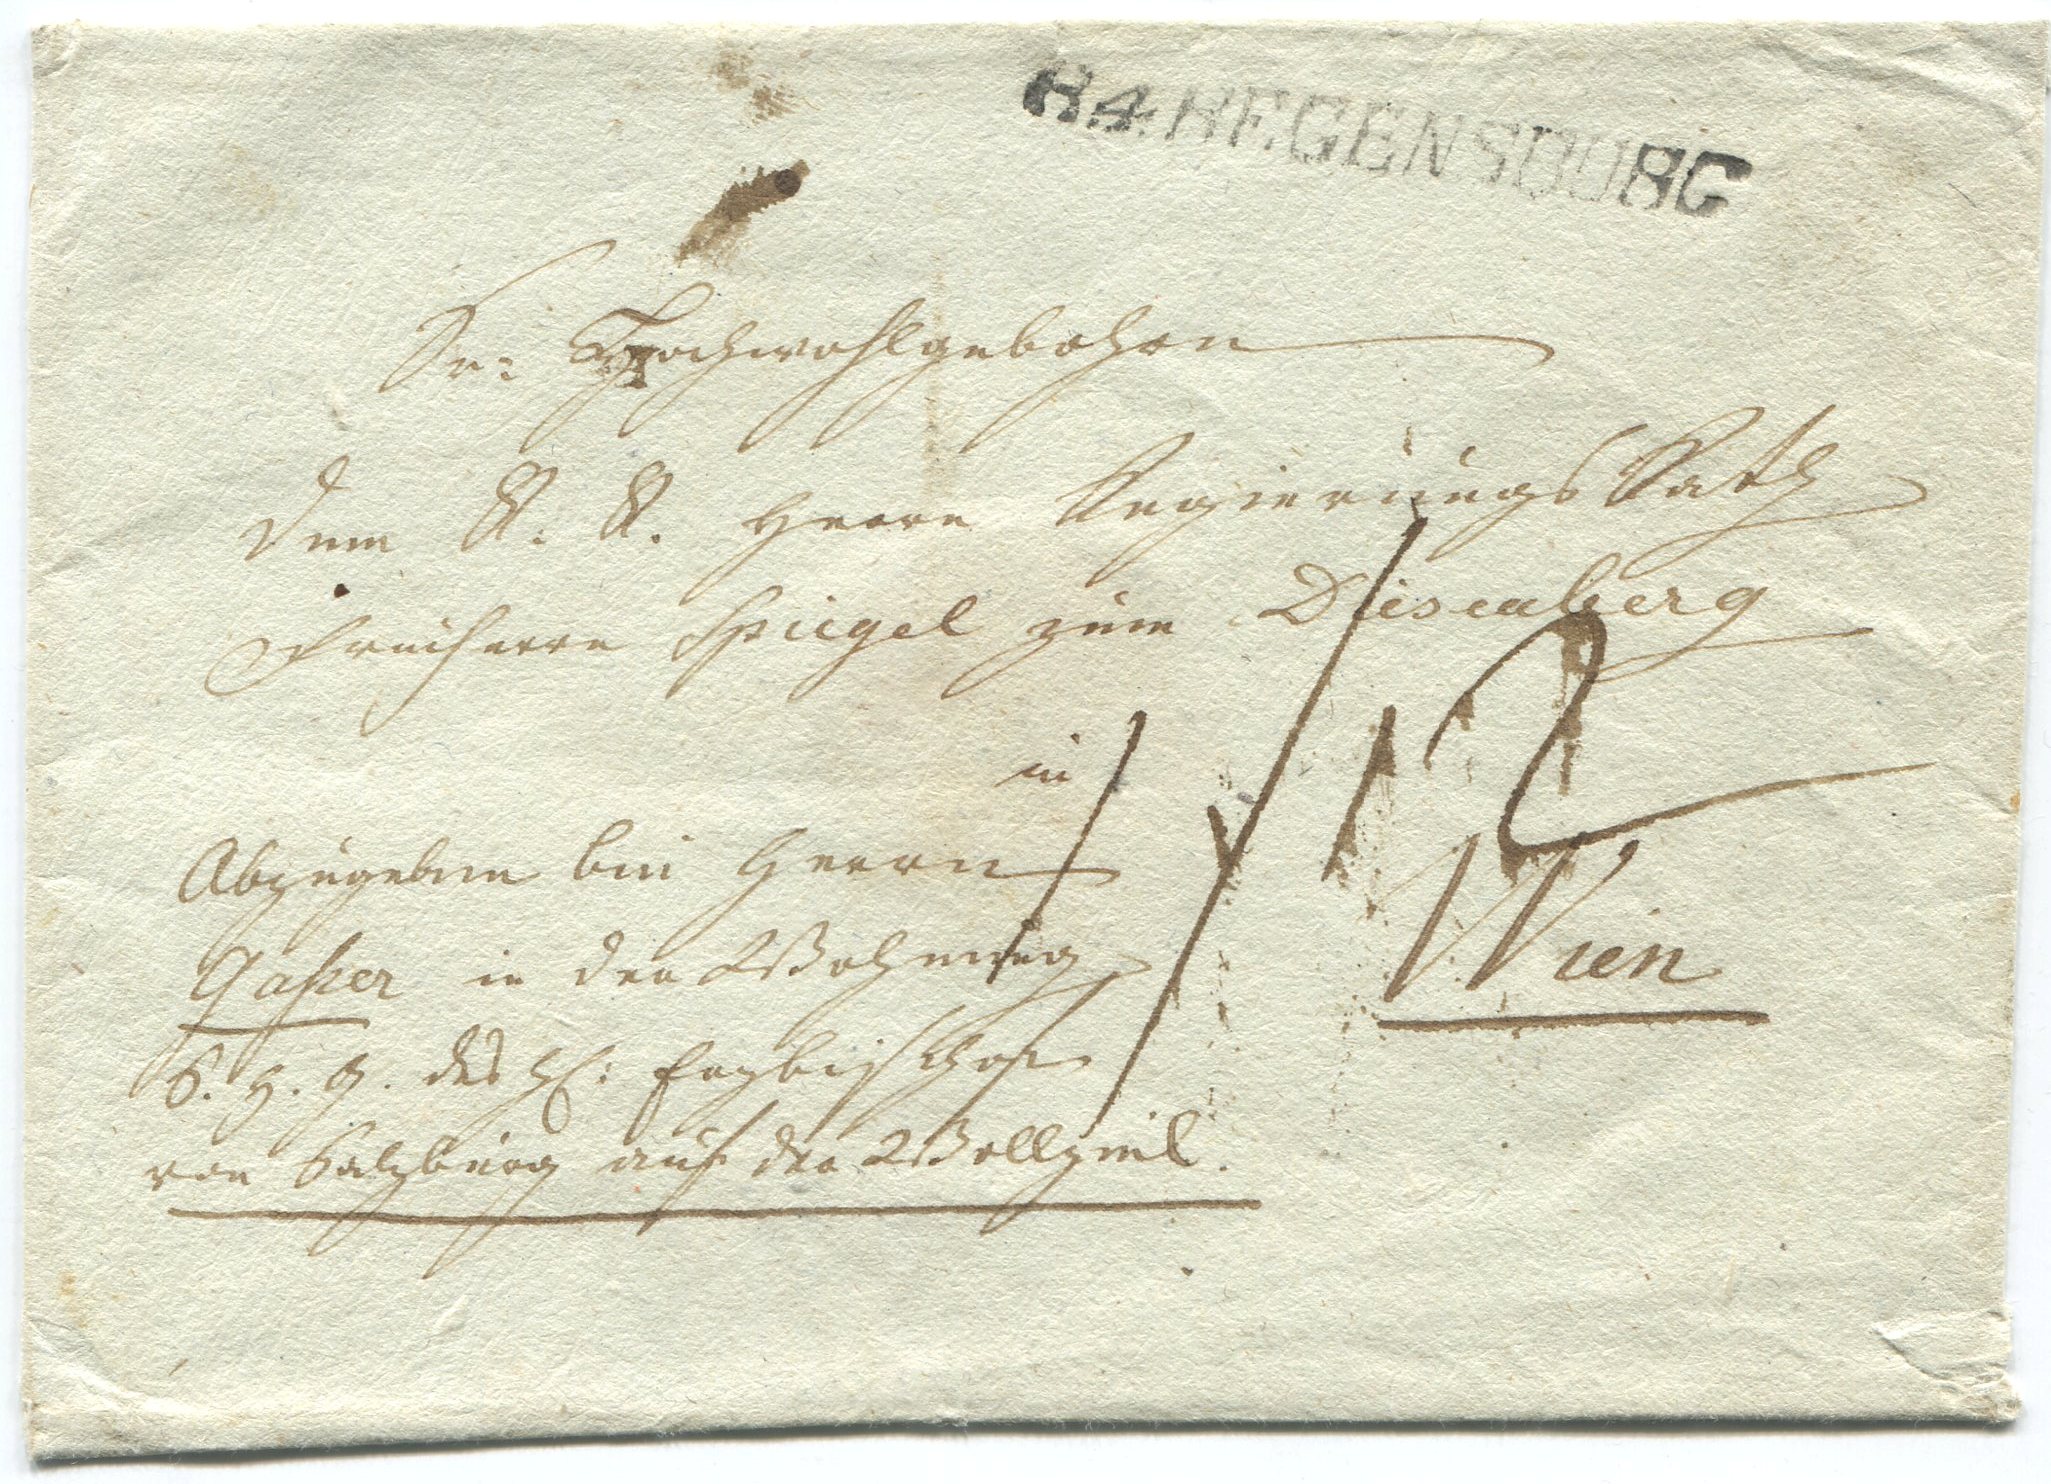 R.4.REGENSBURG
Sr: Hochwohlgebohrn
dem K. K. Herrn Regierungs Rath
Freiherrn Spiegel zum Diesenberg
in
12
Wien
Abzugeben bei Herrn
in der Wohnung
S. H. G. des H: Erzbischof
von Salzburg auf der Wollzeil.